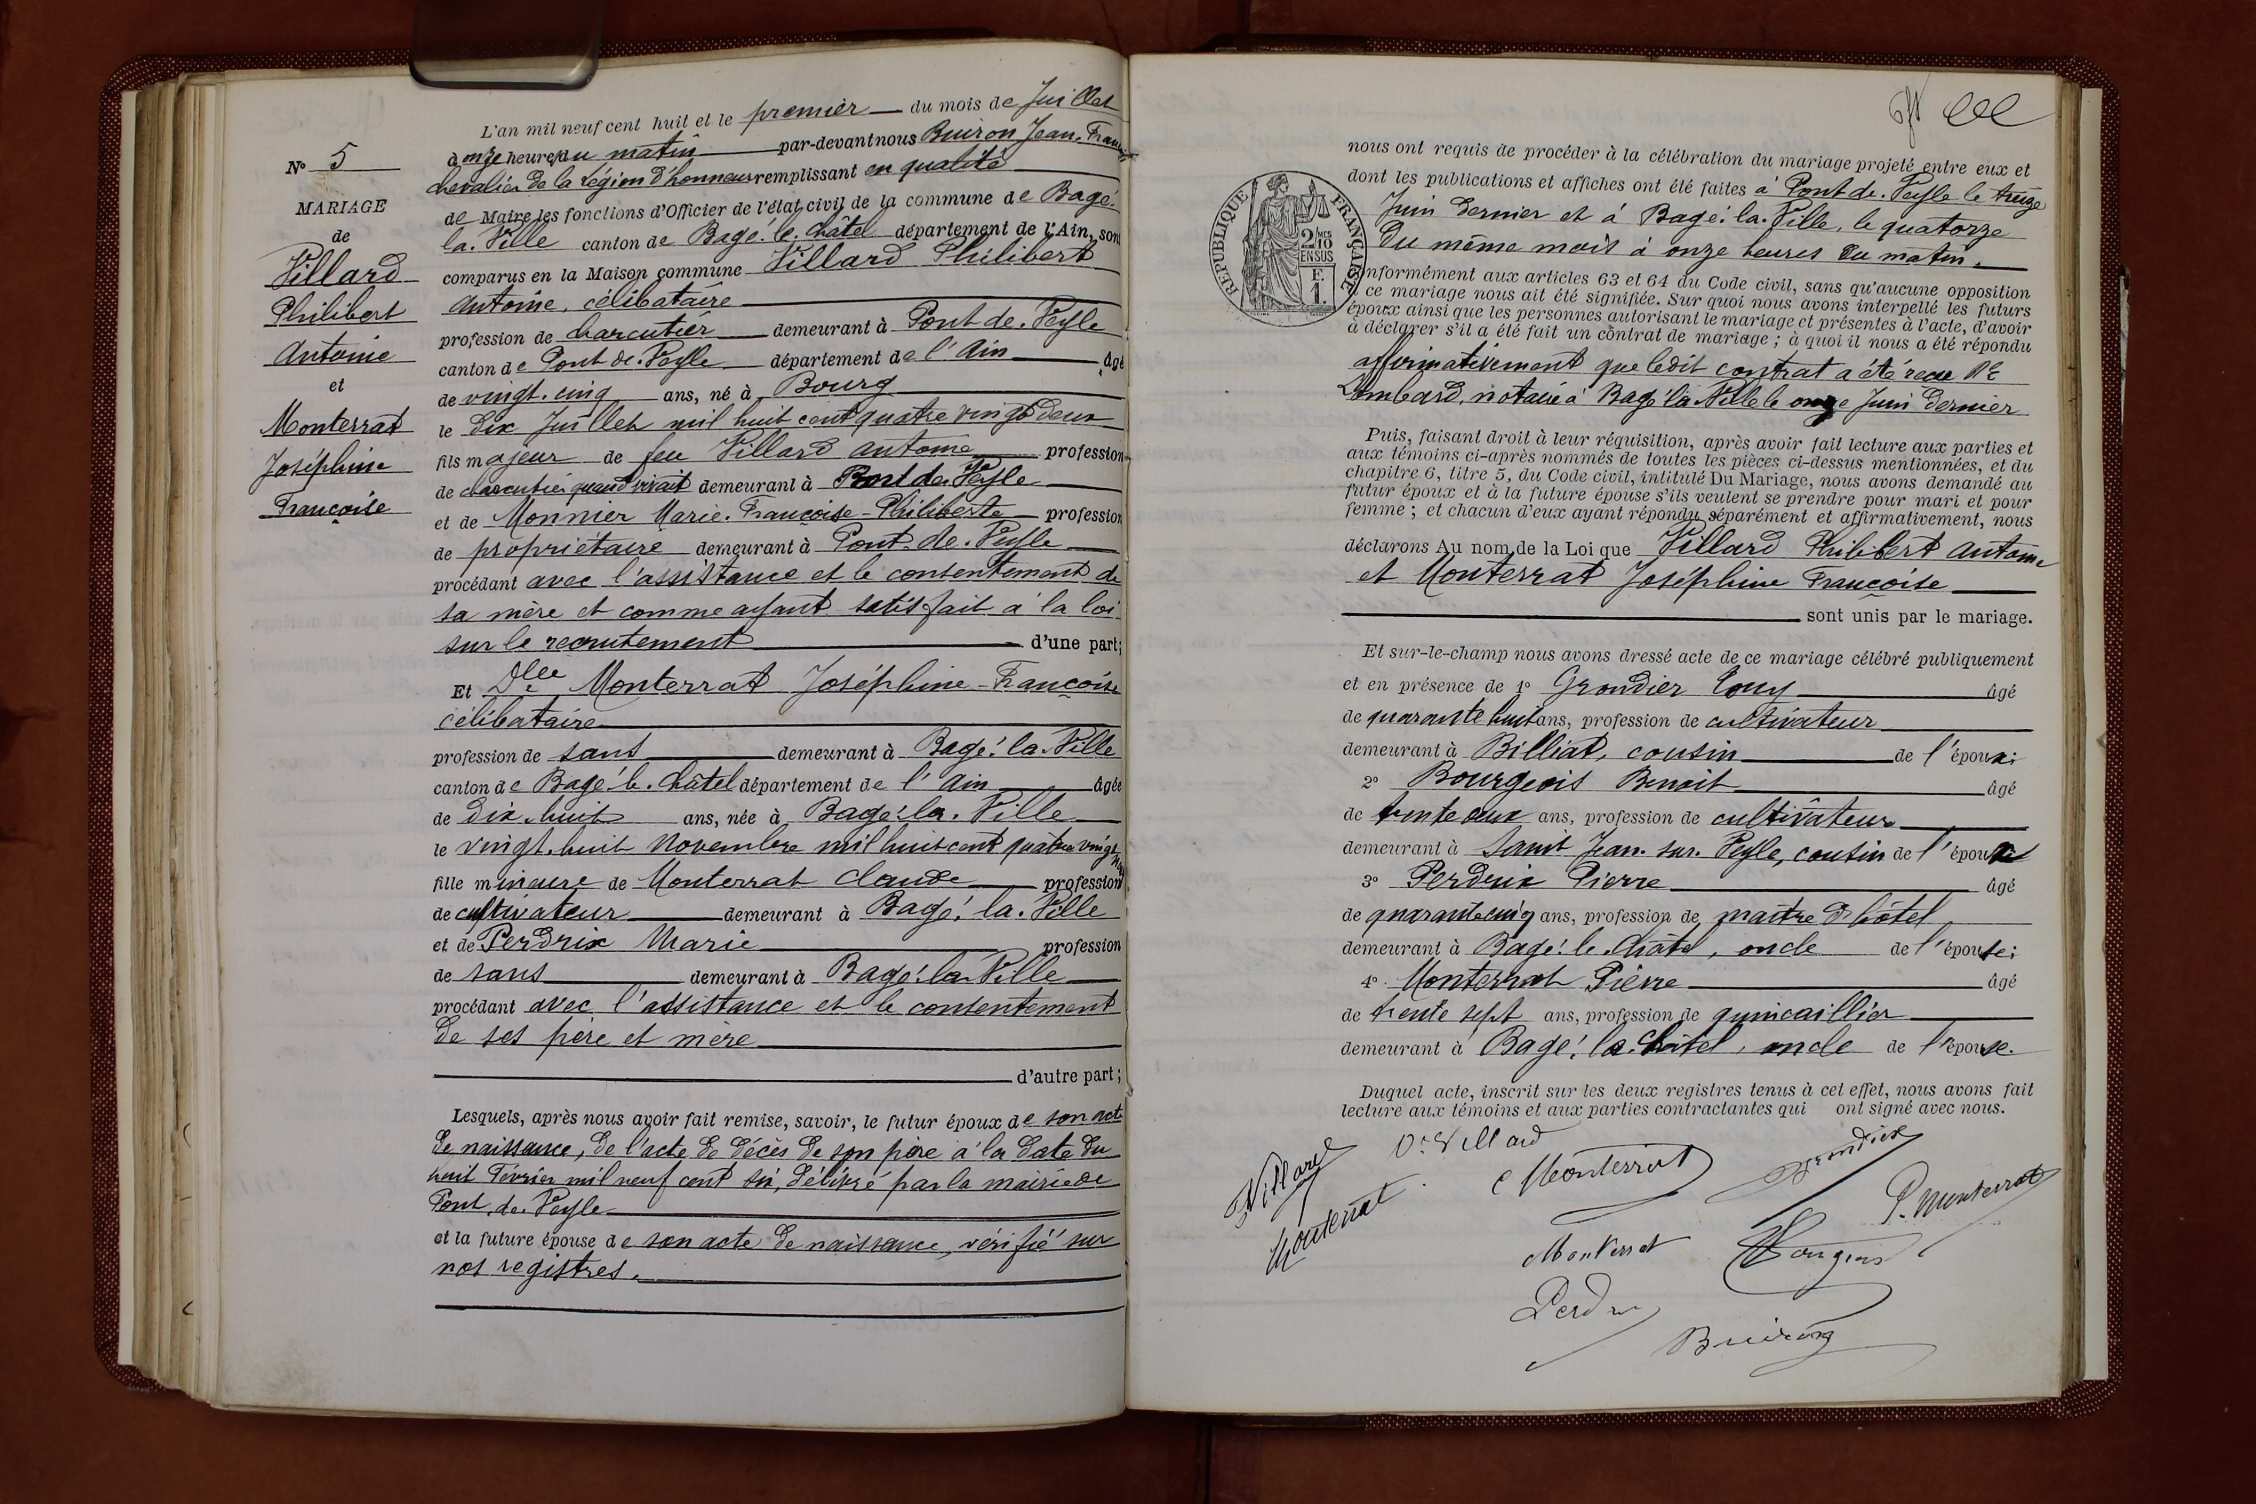 N° 5
MARIAGE
de
Villard
Philibert
Antoine
et
Monterrat
Joséphine
Françoise
L'an mil neuf cent huit et le premier du mois de Juillet
à onze heures du matin par-devant nous Buiron Jean-François
chevalier de la Légion d'honneur remplissant en qualité
de Maire les fonctions d'Officier de l'état civil de la commune de Bagé-
la-Ville canton de Bagé-le-Châtel département de l'Ain, sont
comparus en la Maison commune Villard Philibert
Antoine, célibataire
profession de charcutier demeurant à Pont-de-Veyle
canton de Pont-de-Veyle département de l'Ain âgé
de vingt-cinq ans, né à Bourg
le dix Juillet mil huit cent quatre vingt deux
fils majeur de feu Villard Antoine profession
de charcutier quand vivait demeurant à Pont-de-Veyle
et de Monnier Marie-Françoise-Philiberte profession
de propriétaire demeurant à Pont-de-Veyle
procédant avec l'assistance et le consentement de
sa mère et comme ayant satisfait à la loi
sur le recrutement d'une part;
Et Dlle Monterrat Joséphine-Françoise
célibataire
profession de sans demeurant à Bagé-la-Ville
canton de Bagé-le-Châtel département de l'Ain âgée
de dix-huit ans, née à Bagé-la-Ville
le vingt-huit Novembre mil huit cent quatre vingt neuf
fille mineure de Monterrat Claude profession
de cultivateur demeurant à Bagé-la-Ville
et de Perdrix Marie profession
de sans demeurant à Bagé-la-Ville
procédant avec l'assistance et le consentement
de ses père et mère
d'autre part;
Lesquels, après nous avoir fait remise, savoir, le futur époux de son acte
de naissance, de l'acte de décès de son père à la date du
huit Février mil neuf cent six, délivré par la mairie de
Pont-de-Veyle
et la future épouse de son acte de naissance, vérifié sur
nos registres.
nous ont requis de procéder à la célébration du mariage projeté entre eux et
dont les publications et affiches ont été faites à Pont-de-Veyle le treize
Juin dernier et à Bagé-la-Ville, le quatorze
du même mois à onze heures du matin.
RÉPUBLIQUE FRANÇAISE
2/10 MES
EN SUS
F.
1.
nformément aux articles 63 et 64 du Code civil, sans qu'aucune opposition
ce mariage nous ait été signifiée. Sur quoi nous avons interpellé les futurs
époux ainsi que les personnes autorisant le mariage et présentes à l'acte, d'avoir
à déclarer s'il a été fait un contrat de mariage; à quoi il nous a été répondu
affirmativement que ledit contrat a été reçu Me
Lombard, notaire à Bagé-la-Ville le onze Juin dernier
Puis, faisant droit à leur réquisition, après avoir fait lecture aux parties et
aux témoins ci-après nommés de toutes les pièces ci-dessus mentionnées, et du
chapitre 6, titre 5, du Code civil, intitulé Du Mariage, nous avons demandé au
futur époux et à la future épouse s'ils veulent se prendre pour mari et pour
femme; et chacun d'eux ayant répondu séparément et affirmativement, nous
déclarons Au nom de la Loi que Villard Philibert Antoine
et Monterrat Joséphine Françoise
sont unis par le mariage.
Et sur-le-champ nous avons dressé acte de ce mariage célébré publiquement
et en présence de 1° Grondier Tony âgé
de quarante huit ans, profession de cultivateur
demeurant à Billiat, cousin de l'époux;
2° Bourgeois Benoit âgé
de trente deux ans, profession de cultivateur
demeurant à Saint Jean-sur-Veyle, cousin de l'époux
3° Perdrix Pierre âgé
de quarante cinq ans, profession de maître d'hôtel
demeurant à Bagé-le-Châtel, oncle de l'épouse;
4° Monterrat Pierre âgé
de trente sept ans, profession de quincaillier
demeurant à Bagé-le-Châtel, oncle de l'épouse.
Duquel acte, inscrit sur les deux registres tenus à cet effet, nous avons fait
lecture aux témoins et aux parties contractantes qui ont signé avec nous.
Villard Vve Villard
C Monterrat Grondier
Monterrat P. Monterrat
Monterrat Bourgeois
Perdrix
Buiron